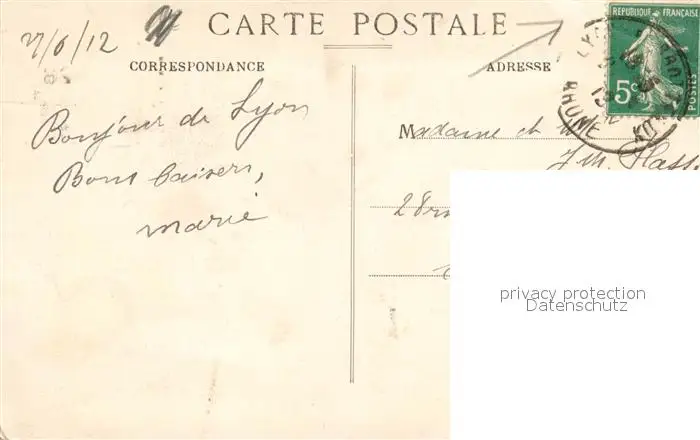 27/6/12
CARTE POSTALE
CORRESPONDANCE
ADRESSE
RÉPUBLIQUE FRANÇAISE
5c
POSTES
RHONE
Bonjour de Lyon
Bons baisers,
Marie
Madame et M
28
privacy protection
Datenschutz